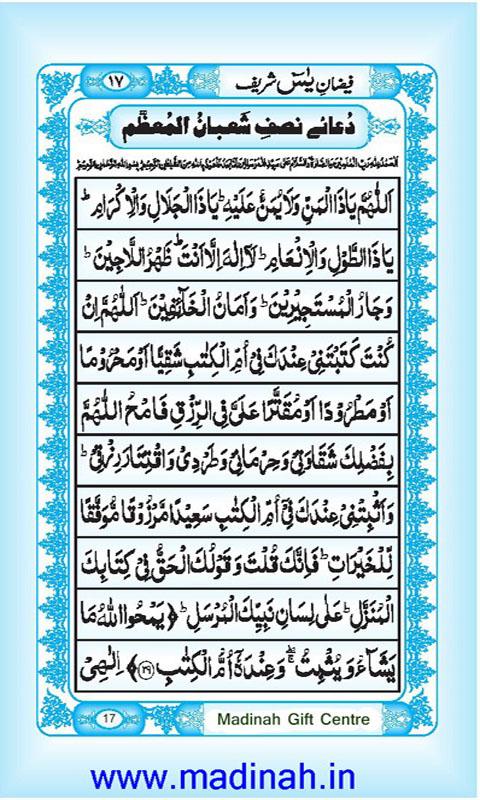 ۱۷ فیضانِ یٰسٓ شریف
دُعائے نصفِ شَعبانُ المُعظّم
اَللّٰهُمَّ يَاذَا الْمَنِّ وَلَا يُمَنُّ عَلَيْهِ ؕ يَا ذَا الْجَلَالِ وَالْاِكْرَامِ ؕ
يَا ذَا الطَّوْلِ وَالْاِنْعَامِ ؕ لَآ اِلٰهَ اِلَّا اَنْتَ ؕ ظَهْرُ اللَّاجِيْنَ ؕ
وَجَارُ الْمُسْتَجِيْرِيْنَ ؕ وَاَمَانُ الْخَآئِفِيْنَ ؕ اَللّٰهُمَّ اِنْ
كُنْتَ كَتَبْتَنِيْ عِنْدَكَ فِيْٓ اُمِّ الْكِتٰبِ شَقِيًّا اَوْ مَحْرُوْمًا
اَوْ مَطْرُوْدًا اَوْ مُقَتَّرًا عَلَيَّ فِي الرِّزْقِ فَامْحُ اللّٰهُمَّ
بِفَضْلِكَ شَقَاوَتِيْ وَحِرْمَانِيْ وَطَرْدِيْ وَاقْتِتَارَ رِزْقِيْ ؕ
وَاَثْبِتْنِيْ عِنْدَكَ فِيْٓ اُمِّ الْكِتٰبِ سَعِيْدًا مَّرْزُوْقًا مُّوَفَّقًا
لِّلْخَيْرَاتِ ؕ فَاِنَّكَ قُلْتَ وَقَوْلُكَ الْحَقُّ فِيْ كِتَابِكَ
الْمُنَزَّلِ ؕ عَلٰى لِسَانِ نَبِيِّكَ الْمُرْسَلِ ؕ ﴿ يَمْحُوا اللّٰهُ مَا
يَشَآءُ وَيُثْبِتُ ۖ وَعِنْدَهٗٓ اُمُّ الْكِتٰبِ ﴿۳۹﴾ اِلٰهِيْ
17 Madinah Gift Centre
www.madinah.in